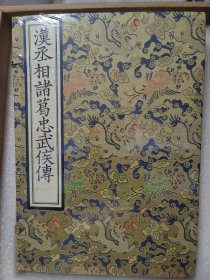 漢丞相諸葛忠武侯傳